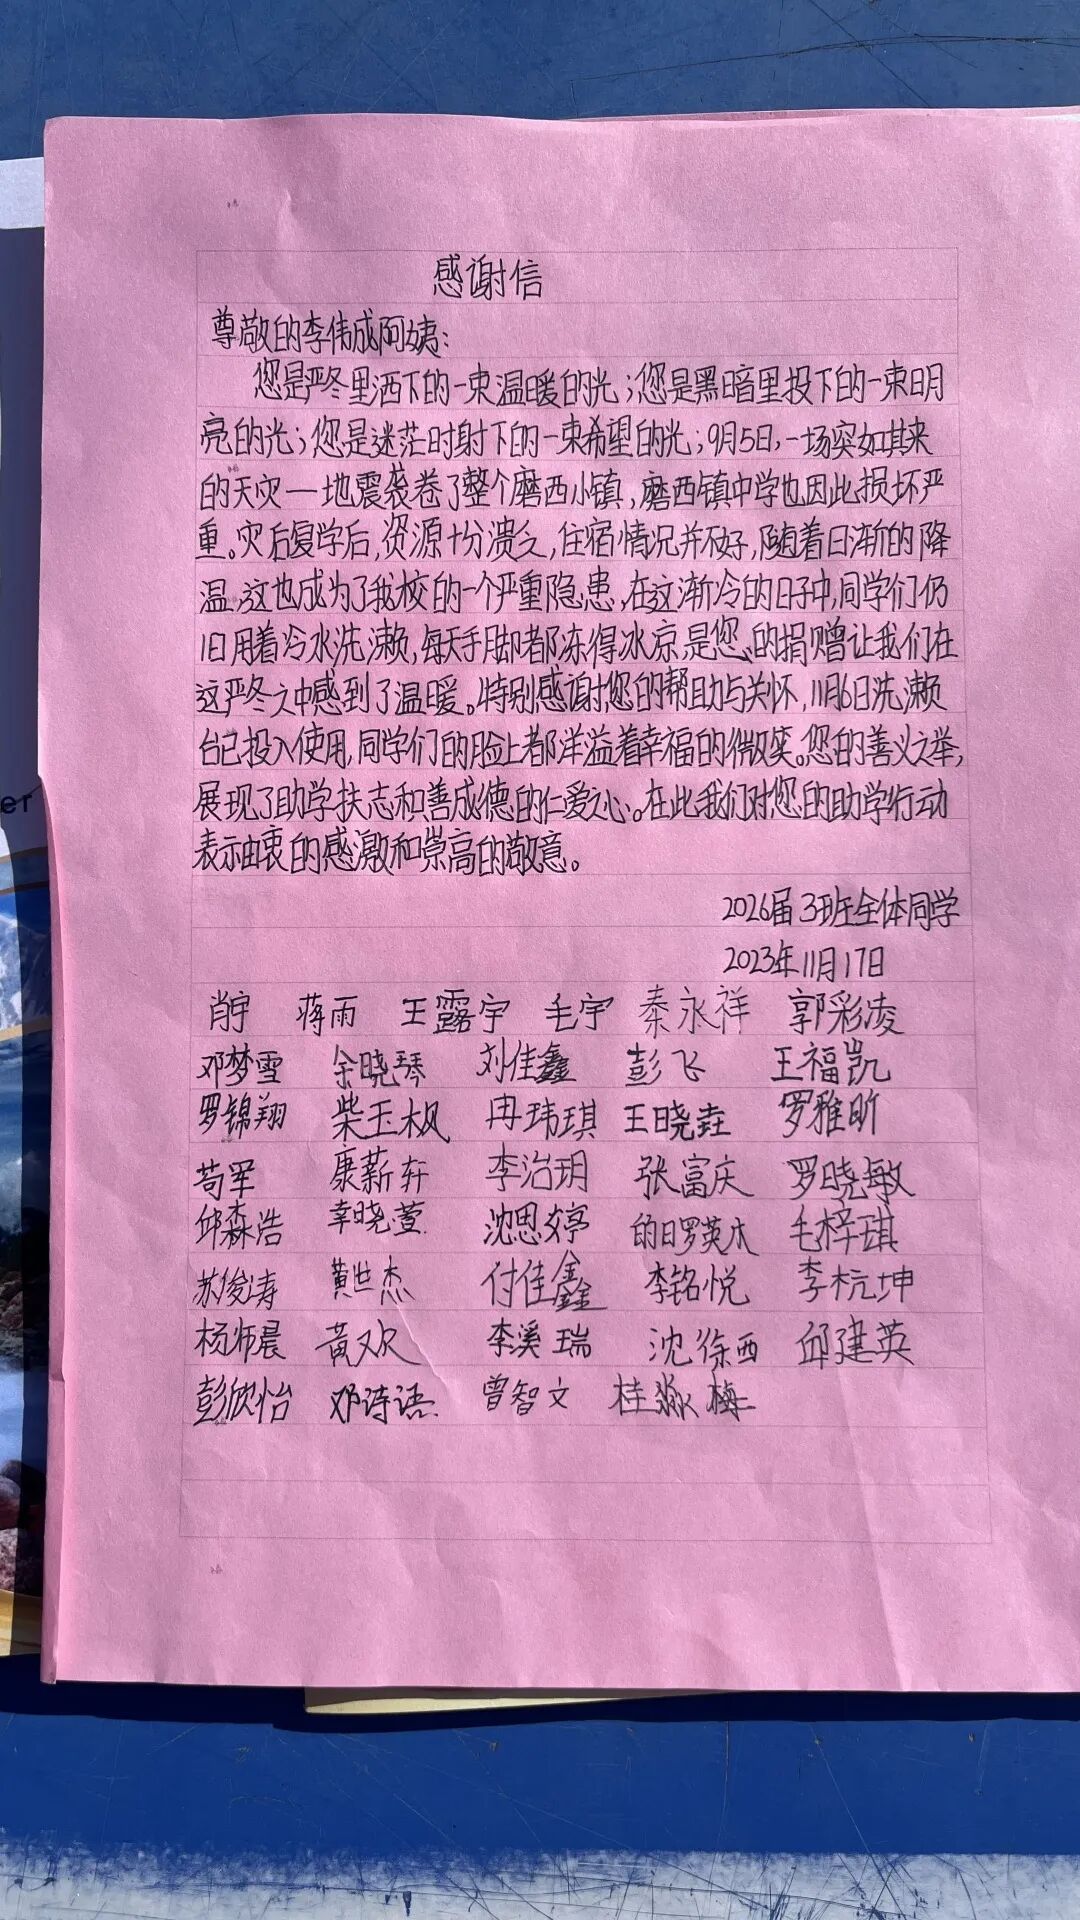 感谢信
尊敬的李伟成阿姨:
您是严冬里洒下的一束温暖的光;您是黑暗里投下的一束明
亮的光;您是迷茫时射下的一束希望的光;9月5日,一场突如其来
的天灾—地震袭卷了整个磨西小镇,磨西镇中学也因此损坏严
重。灾后复学后,资源十分溃乏,住宿情况并不好,随着日渐的降
温,这也成为了我校的一个严重隐患,在这渐冷的日子中,同学们仍
旧用着冷水洗漱,每天手脚都冻得冰凉,是您的捐赠让我们在
这严冬之中感到了温暖。特别感谢您的帮助与关怀,11月6日洗漱
台已投入使用,同学们的脸上都洋溢着幸福的微笑。您的善义之举,
展现了助学扶志和善成德的仁爱之心。在此我们对您的助学行动
表示由衷的感激和崇高的敬意。
2026届3班全体同学
2023年11月17日
肖宇 蒋雨 王露宇 毛宇 秦永祥 郭彩凌
邓梦雪 余晓琴 刘佳鑫 彭飞 王福凯
罗锦翔 柴玉枫 冉玮琪 王晓垚 罗雅昕
苟军 康薪轩 李治玥 张富庆 罗晓敏
邱森浩 幸晓萱 沈思婷 的日罗英木 毛梓琪
苏俊涛 黄世杰 付佳鑫 李铭悦 李杭坤
杨师晨 黄欢 李溪瑞 沈徐西 邱建英
彭欣怡 邓诗语 曾智文 桂淼梅
er